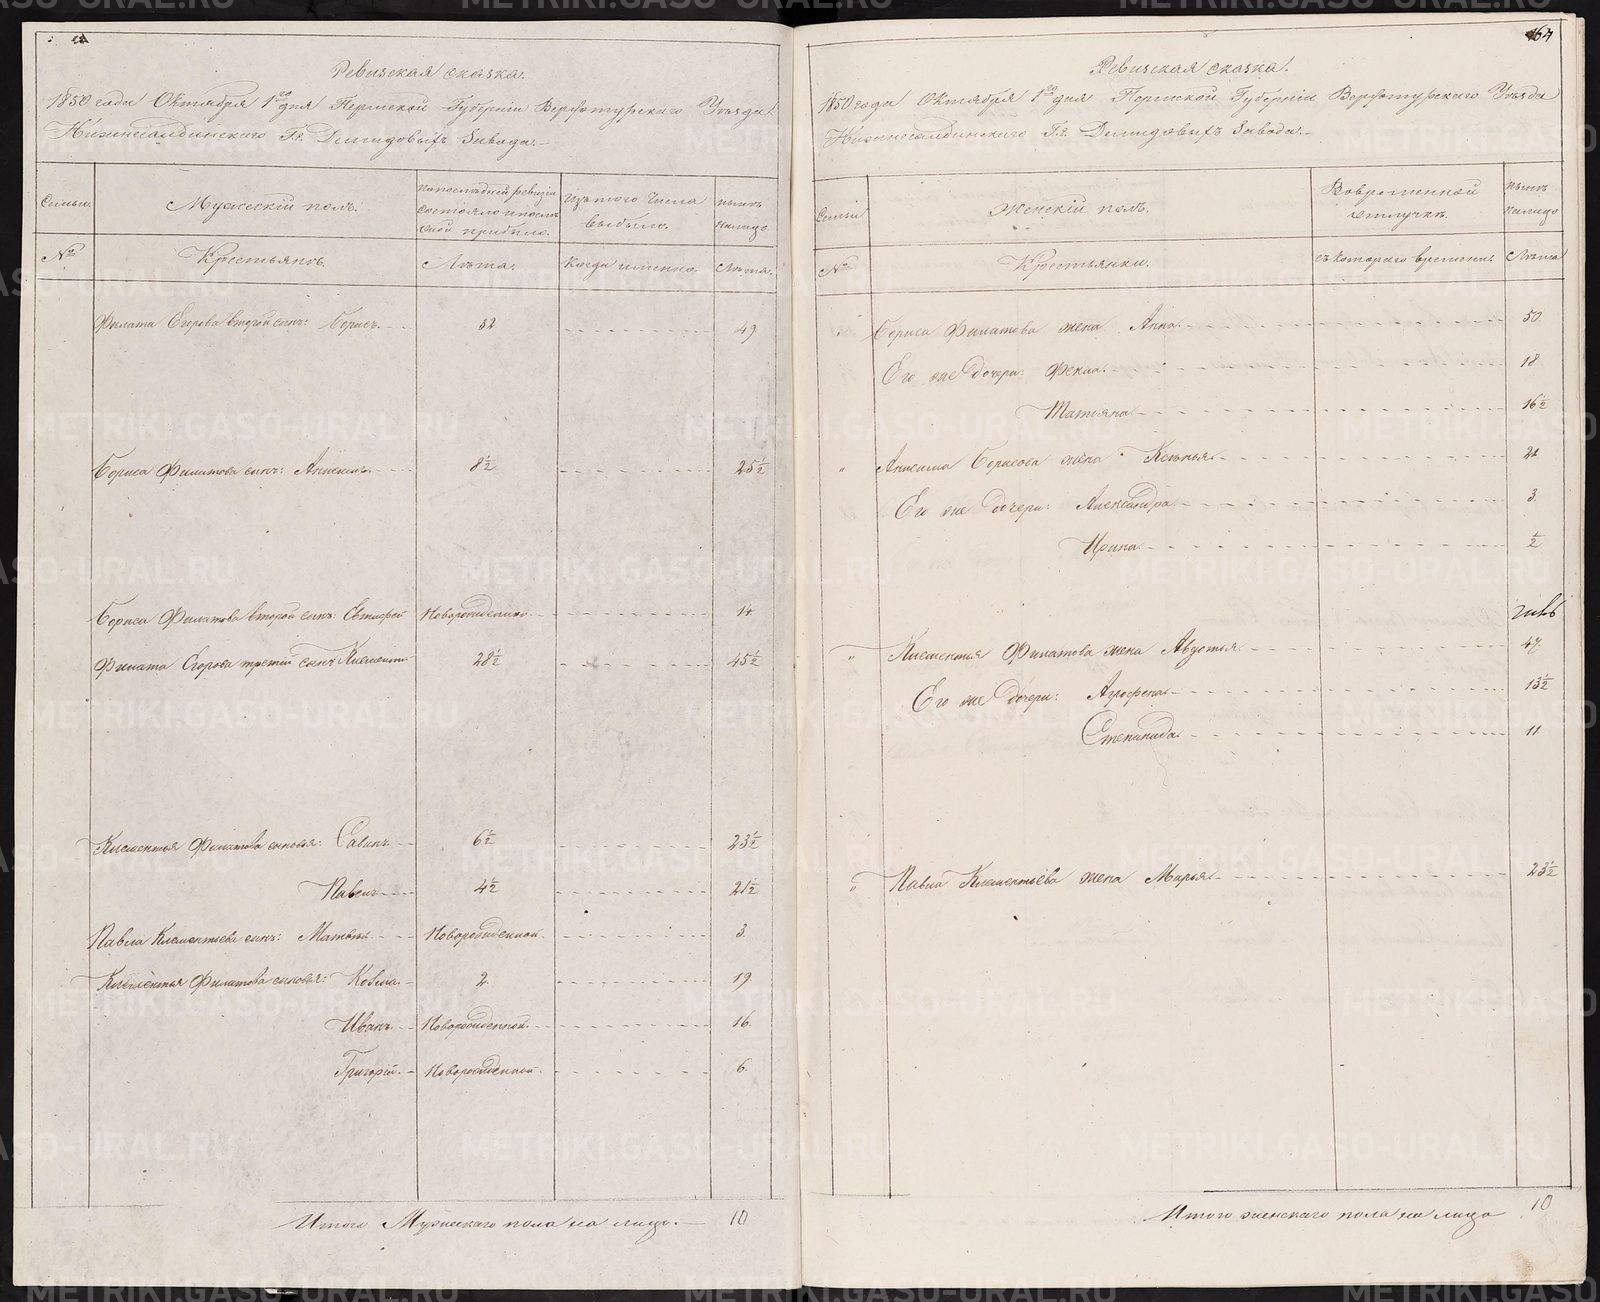 Ревизская сказка.
1850 года Октября 1го дня Пермской Губернiи Верхотурскаго Уѣзда
Нижнесалдинскаго Г.г. Демидовыхъ Завода.
Семьи.
Мужескiй полъ.
По последней ревизiи состояло и после оной прибыло.
Изъ того числа выбыло.
Нынѣ на лицо
№
Крестьянъ.
Лѣта.
Когда именно.
Лѣта.
Филата Егорова второй сынъ: Борисъ. 32 49
Бориса Филатова сынъ: Анисимъ. 8 1/2 25 1/2
Бориса Филатова второй сынъ: Новорожденной 14
Филата Егорова третiй сынъ Клементiй 28 1/2 45 1/2
Клементья Филатова сыновья: Савинъ. 6 1/2 23 1/2
Павелъ 4 1/2 21 1/2
Павла Клементьева сынъ: Матвѣй Новорожденной. 3.
Клементья Филатова сыновья: Козма. 2. 19.
Иванъ. Новорожденной. 16.
Григорiй. Новорожденной. 6.
Итого Мужескаго пола на лицо. 10
164
Ревизская сказка.
1850 года Октября 1го дня Пермской Губернiи Верхотурскаго Уѣзда
Нижнесалдинскаго Г.г. Демидовыхъ Завода.
Семьи
Женскiй полъ.
Во временной отлучкѣ.
Нынѣ на лицо
№
Крестьянки.
Съ котораго времени.
Лѣта
Бориса Филатова жена Анна. 50.
Его же дочери: Фекла. 18
Татьяна 16 1/2
" Анисима Борисова жена Ксенья. 21
Его же дочери: Александра 3.
Ирина. 1/2
" Клементья Филатова жена Авдотья. 47.
Его же дочери: Агрофена. 13 1/2
Степанида. 11
" Павла Клементьева жена Марья. 23 1/2
Итого женскаго пола на лицо 10